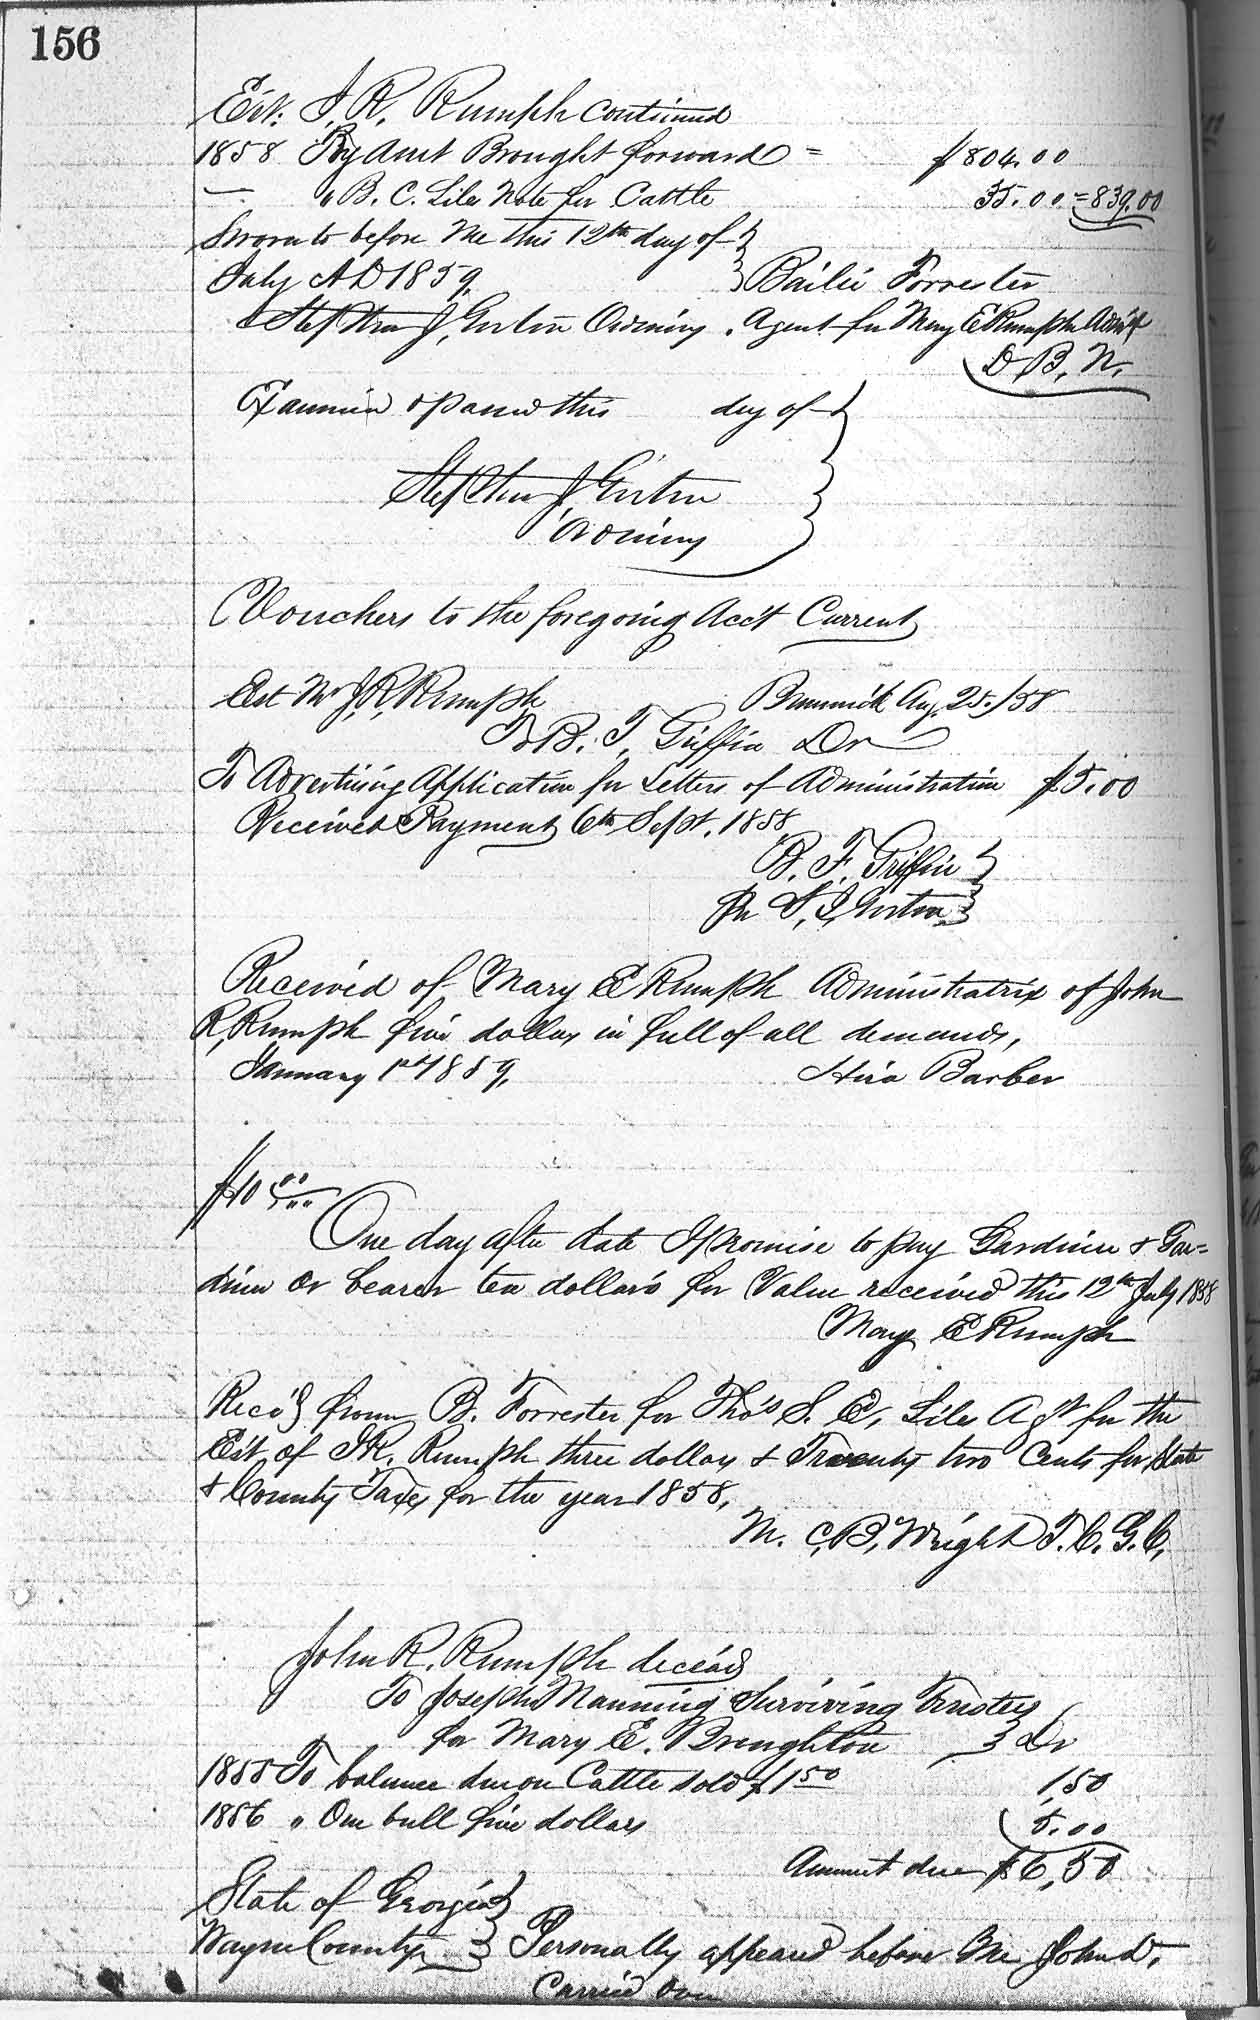 156
Est. J. R. Rumph continued
1858 By Amt Brought forward = $804.00
— " B. C. Liles Note for Cattle 35.00 = 839.00
Sworn to before Me this 12th day of
July A D 1859, Bailie Forrester
Stephen J, Gorton Ordinary. Agent for Mary E Rumph Adm'x
D. B. N.
Examined & passed this day of
Stephen J, Gorton
Ordinary
Vouchers to the foregoing Acc't Current
Est Mr J. R, Rumph Brunswick Aug. 25./58
To B. F, Griffin Dr
To Advertising Application for Letters of Administration $5.00
Received Payment 6th Sept. 1858
B. F. Griffin
per S, J, Gorton
Received of Mary E Rumph Administratrix of John
R, Rumph five dollars in full of all demands,
January 1st 1859, Hira Barber
$10 00
One day after date I promise to pay Gardiner & Gar=
diner or bearer ten dollars for Value received this 12th July 1858
Mary E Rumph
Rec'd from B. Forrester for Tho's S. E, Liles Ag't for the
Est of J R. Rumph three dollars & Twenty two Cents for State
& County Taxes for the year 1858,
M. C, B, Wright T. C. G. C,
John R. Rumph deceas'd
To Joseph Manning Surviving Trustee
for Mary E. Broughton Dr
1855 To balance due on Cattle sold $1 50 1,50
1856 " One bull five dollars 5.00
Amount due $6,50
State of Georgia
Wayne County, Personally appeared before Me John D.
Carried Over